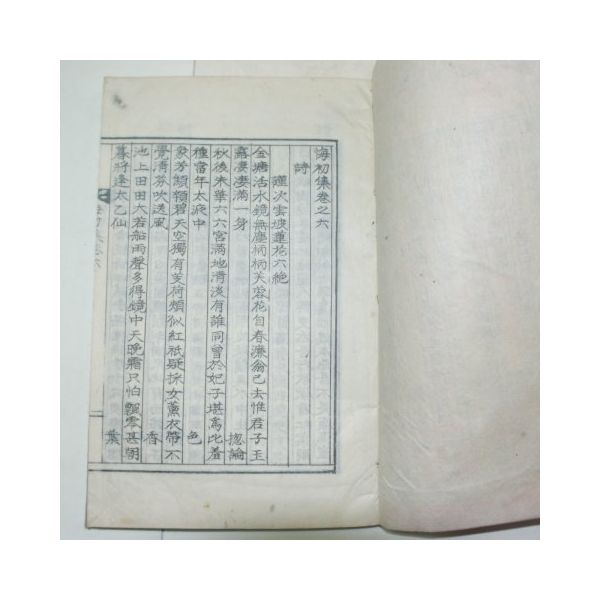 悔初集卷之六
詩
謹次雲塘蓮花六絶
金塘活水鏡無塵柄柄芙蓉花自春濂翁已去惟君子玉
露凄凄滿一身 揔論
秋後朱華六六宮滿地清淺有誰同曾於妃子堪爲比羞
種當年太液中 色
象芳頷碧天空獨有芰荷類似紅祇疑採女薰衣帶不
覺清芬吹送風 香
池上田田大若船雨聲多得鏡中天晚霜只怕飄零甚朝
暮將逢太乙仙 葉